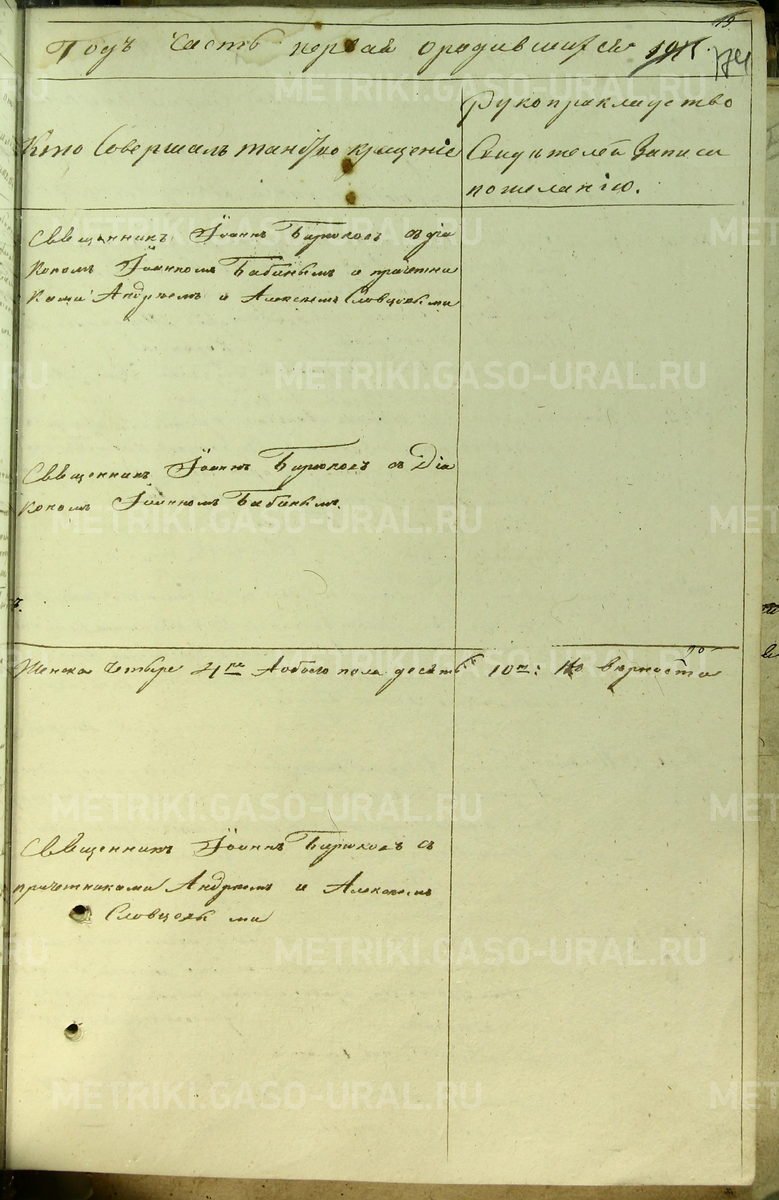 15
Годъ Часть первая ородившихся
174
Кто Совершалъ таинство крещенiе
Рукоприкладство
Свидѣтелей Записи
пожеланiю.
Священникъ Iоаннъ Бирюковъ съ дiа
кономъ Iоанномъ Бабинымъ и причетни
ками Андреемъ и Алексѣемъ Словцовыми
Священникъ Iоаннъ Бирюковъ съ Дiа
кономъ Iоанномъ Бабинымъ.
Женска Четыре 4ре Аобоего пола десять 10ть: Но вѣрности
Священникъ Iоаннъ Бирюковъ съ
причетниками Андреемъ и Алексѣемъ
Словцовыми
METRIKI.GASO-URAL.RU